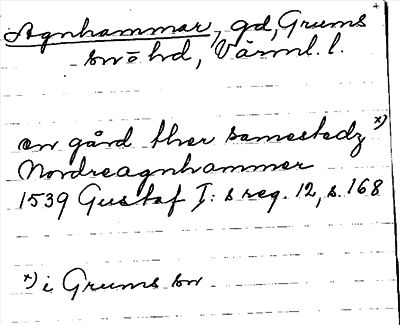 Agnhammar, gd, Grums
sn o hd, Värml. l.
en gård ther samestedz *)
Nordreagnhammer
1539 Gustaf I:s reg. 12, s. 168
*) i Grums sn